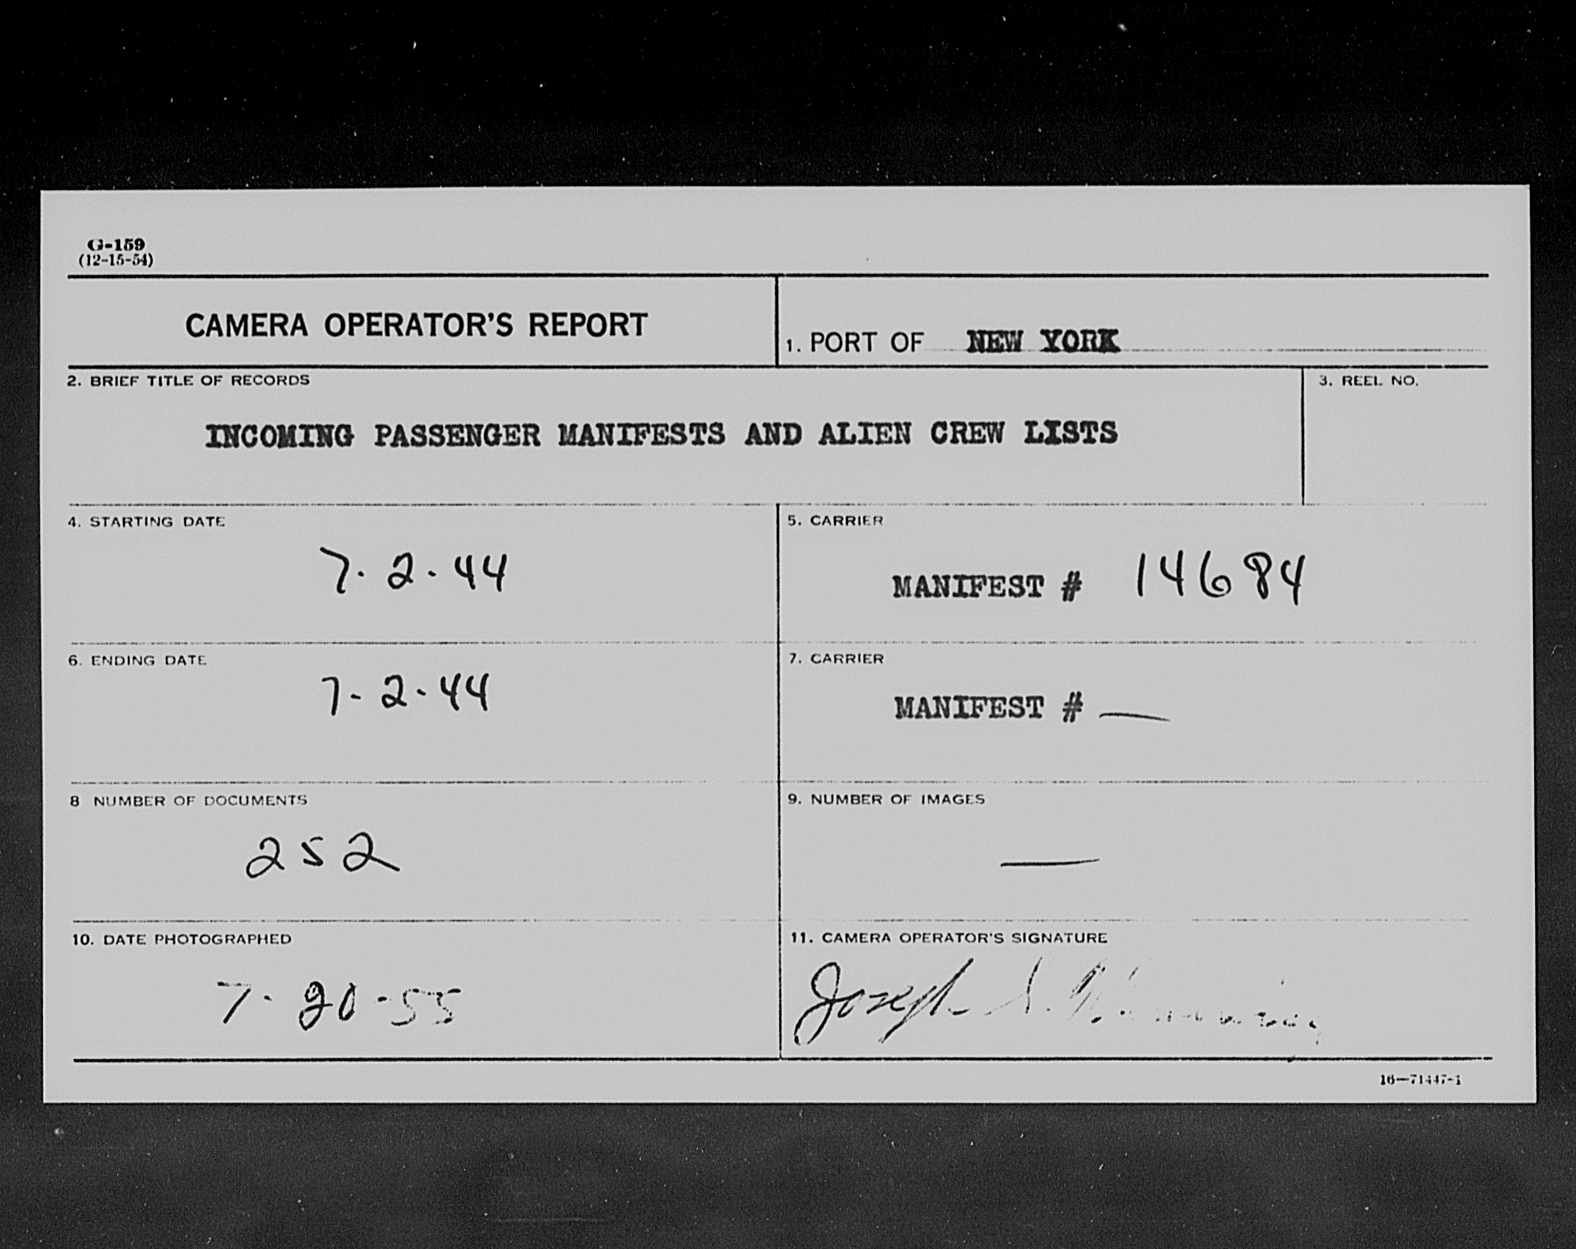 G-159
(12-15-54)
CAMERA OPERATOR'S REPORT
1. PORT OF NEW YORK
2. BRIEF TITLE OF RECORDS
3. REEL NO.
INCOMING PASSENGER MANIFESTS AND ALIEN CREW LISTS
4. STARTING DATE
7-2-44
5. CARRIER
MANIFEST # 14684
6. ENDING DATE
7-2-44
7. CARRIER
MANIFEST # —
8 NUMBER OF DOCUMENTS
252
9. NUMBER OF IMAGES
—
10. DATE PHOTOGRAPHED
7-20-55
11. CAMERA OPERATOR'S SIGNATURE
Joseph S.
16—71447-1